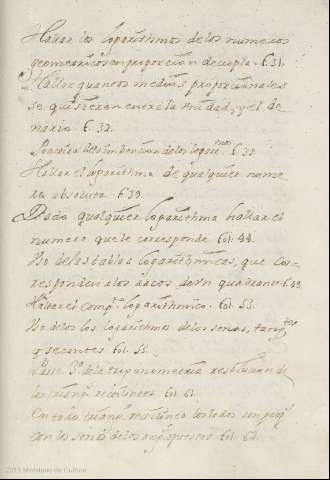 Hallar los logarithmos de los numeros
geometricos en proporcion decupla. f. 31.
Hallar quantos medios proporcionales
se quisieren entre la unidad, y el de
nario f. 32.
Practica de la Inbencion de los logar.mos f. 38
Hallar el logarithmo de qualquier nume
ro absoluto f. 39.
Dado qualquier logarithmo hallar el
numero que le corresponde fol. 44.
Uso de las tablas logarithmicas, que cor-
responden a los arcos de un quadrante f. 49.
Hallar el comp.to logarithmico fol. 53.
Uso de los logarithmos de los senos, tang.tes
y secantes fol. 55.
Parte 3.a de la trigonometria resolucion de
los triang.s rectilineos fol. 61.
En todo triang.o rectilineo los lados son prop.s
con los senos de los ang.s opuestos fol. 62.
2011 Ministerio de Cultura